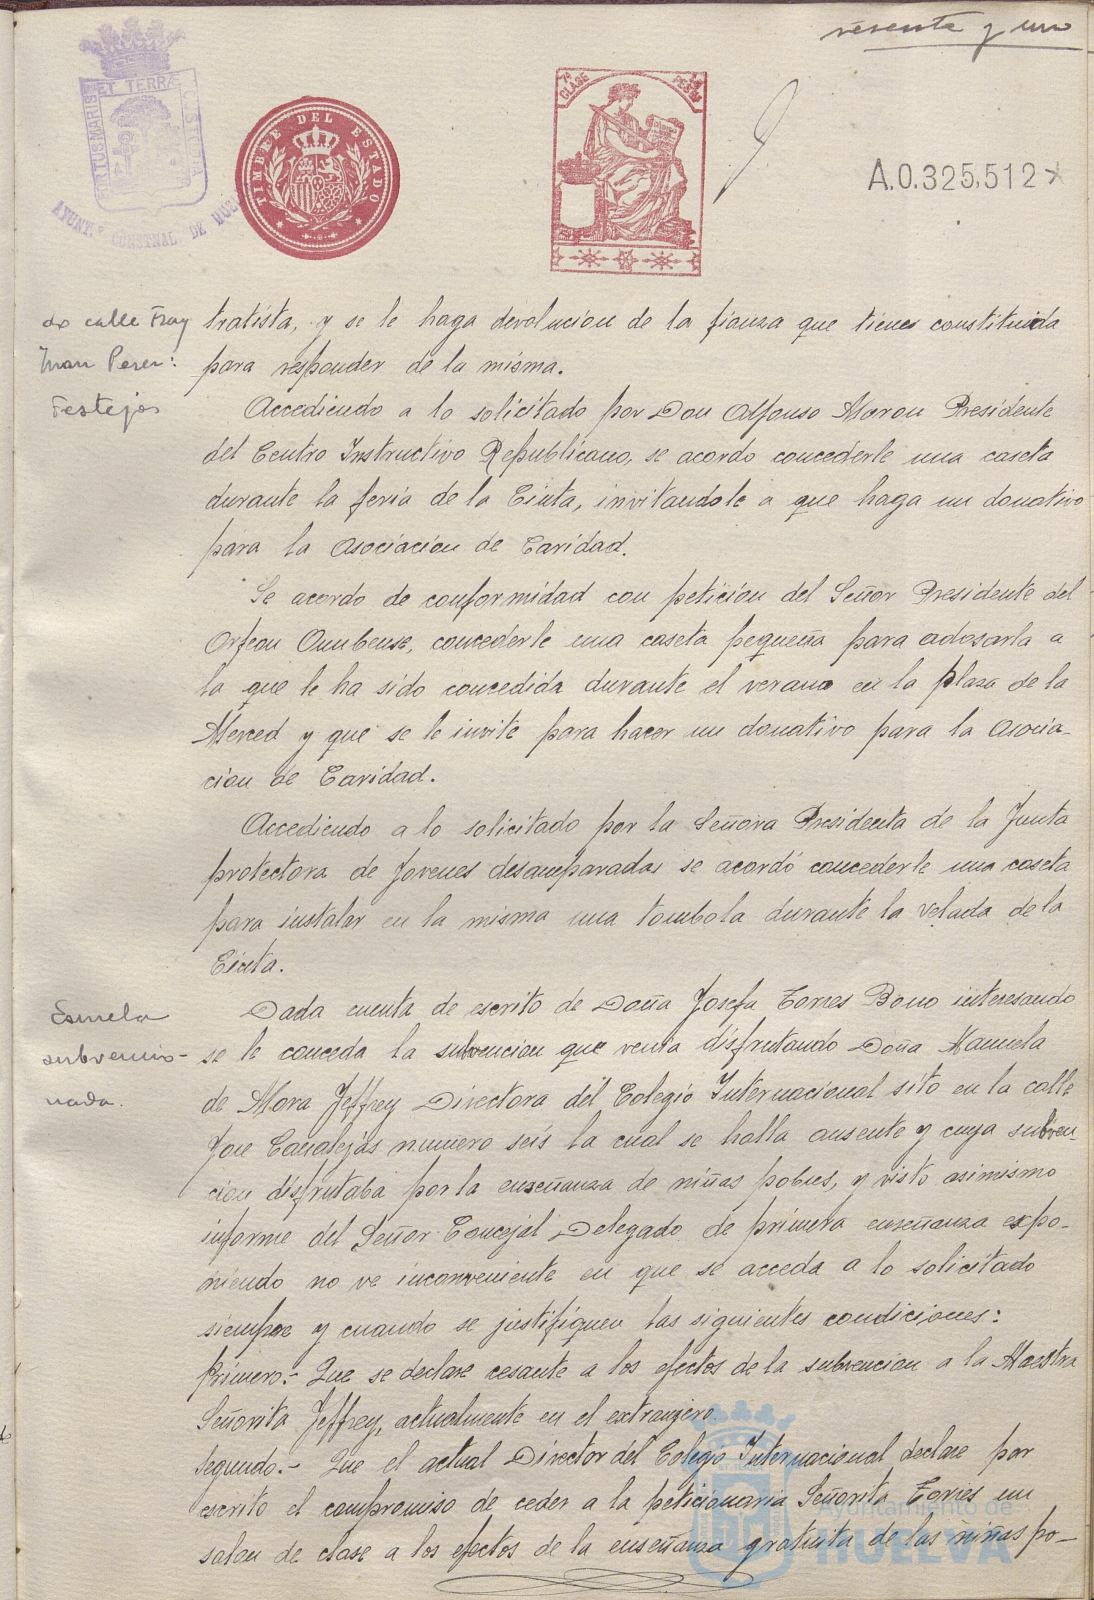 sesenta y uno
PORTUS MARIS ET TERRÆ CUSTODIA
AYUNT.º CONSTNAL DE HUE
TIMBRE DEL ESTADO
7ª CLASE
PESETAS
A.0.325,512
do calle Fray
Juan Perez:
Festejos
tratista, y se le haga devolucion de la fianza que tiene constituida
para responder de la misma.
Accediendo a lo solicitado por Don Alfonso Moron Presidente
del Centro Instructivo Republicano, se acordo concederle una caseta
durante la feria de la Cinta, invitandole a que haga un donativo
para la Asociacion de Caridad.
Se acordo de conformidad con peticion del Señor Presidente del
Orfeon Onubense, concederle una caseta pequeña para adosarla a
la que le ha sido concedida durante el verano en la plaza de la
Merced y que se le invite para hacer un donativo para la Asocia-
cion de Caridad.
Accediendo a lo solicitado por la Señora Presidenta de la Junta
protectora de Jovenes desamparadas se acordó concederle una caseta
para instalar en la misma una tombola durante la Velada de la
Cinta.
Escuela
subvencio-
nada.
Dada cuenta de escrito de Doña Josefa Torres Bono interesando
se le conceda la subvencion que venia disfrutando Doña Manuela
de Mora Jeffrey Directora del Colegio Internacional sito en la calle
Jose Canalejas numero seis la cual se halla ausente y cuya subven-
cion disfrutaba por la enseñanza de niñas pobres, y visto asimismo
informe del Señor Concejal Delegado de primera enseñanza expo-
niendo no ve inconveniente en que se acceda a lo solicitado
siempre y cuando se justifiquen las siguientes condiciones:
Primero.- Que se declare cesante a los efectos de la subvencion a la Maestra
Señorita Jeffrey, actualmente en el extranjero.
Segundo.- Que el actual Director del Colegio Internacional declare por
escrito el compromiso de ceder a la peticionaria Señorita Torres un
salon de clase a los efectos de la enseñanza gratuita de las niñas po-
Ayuntamiento de
HUELVA